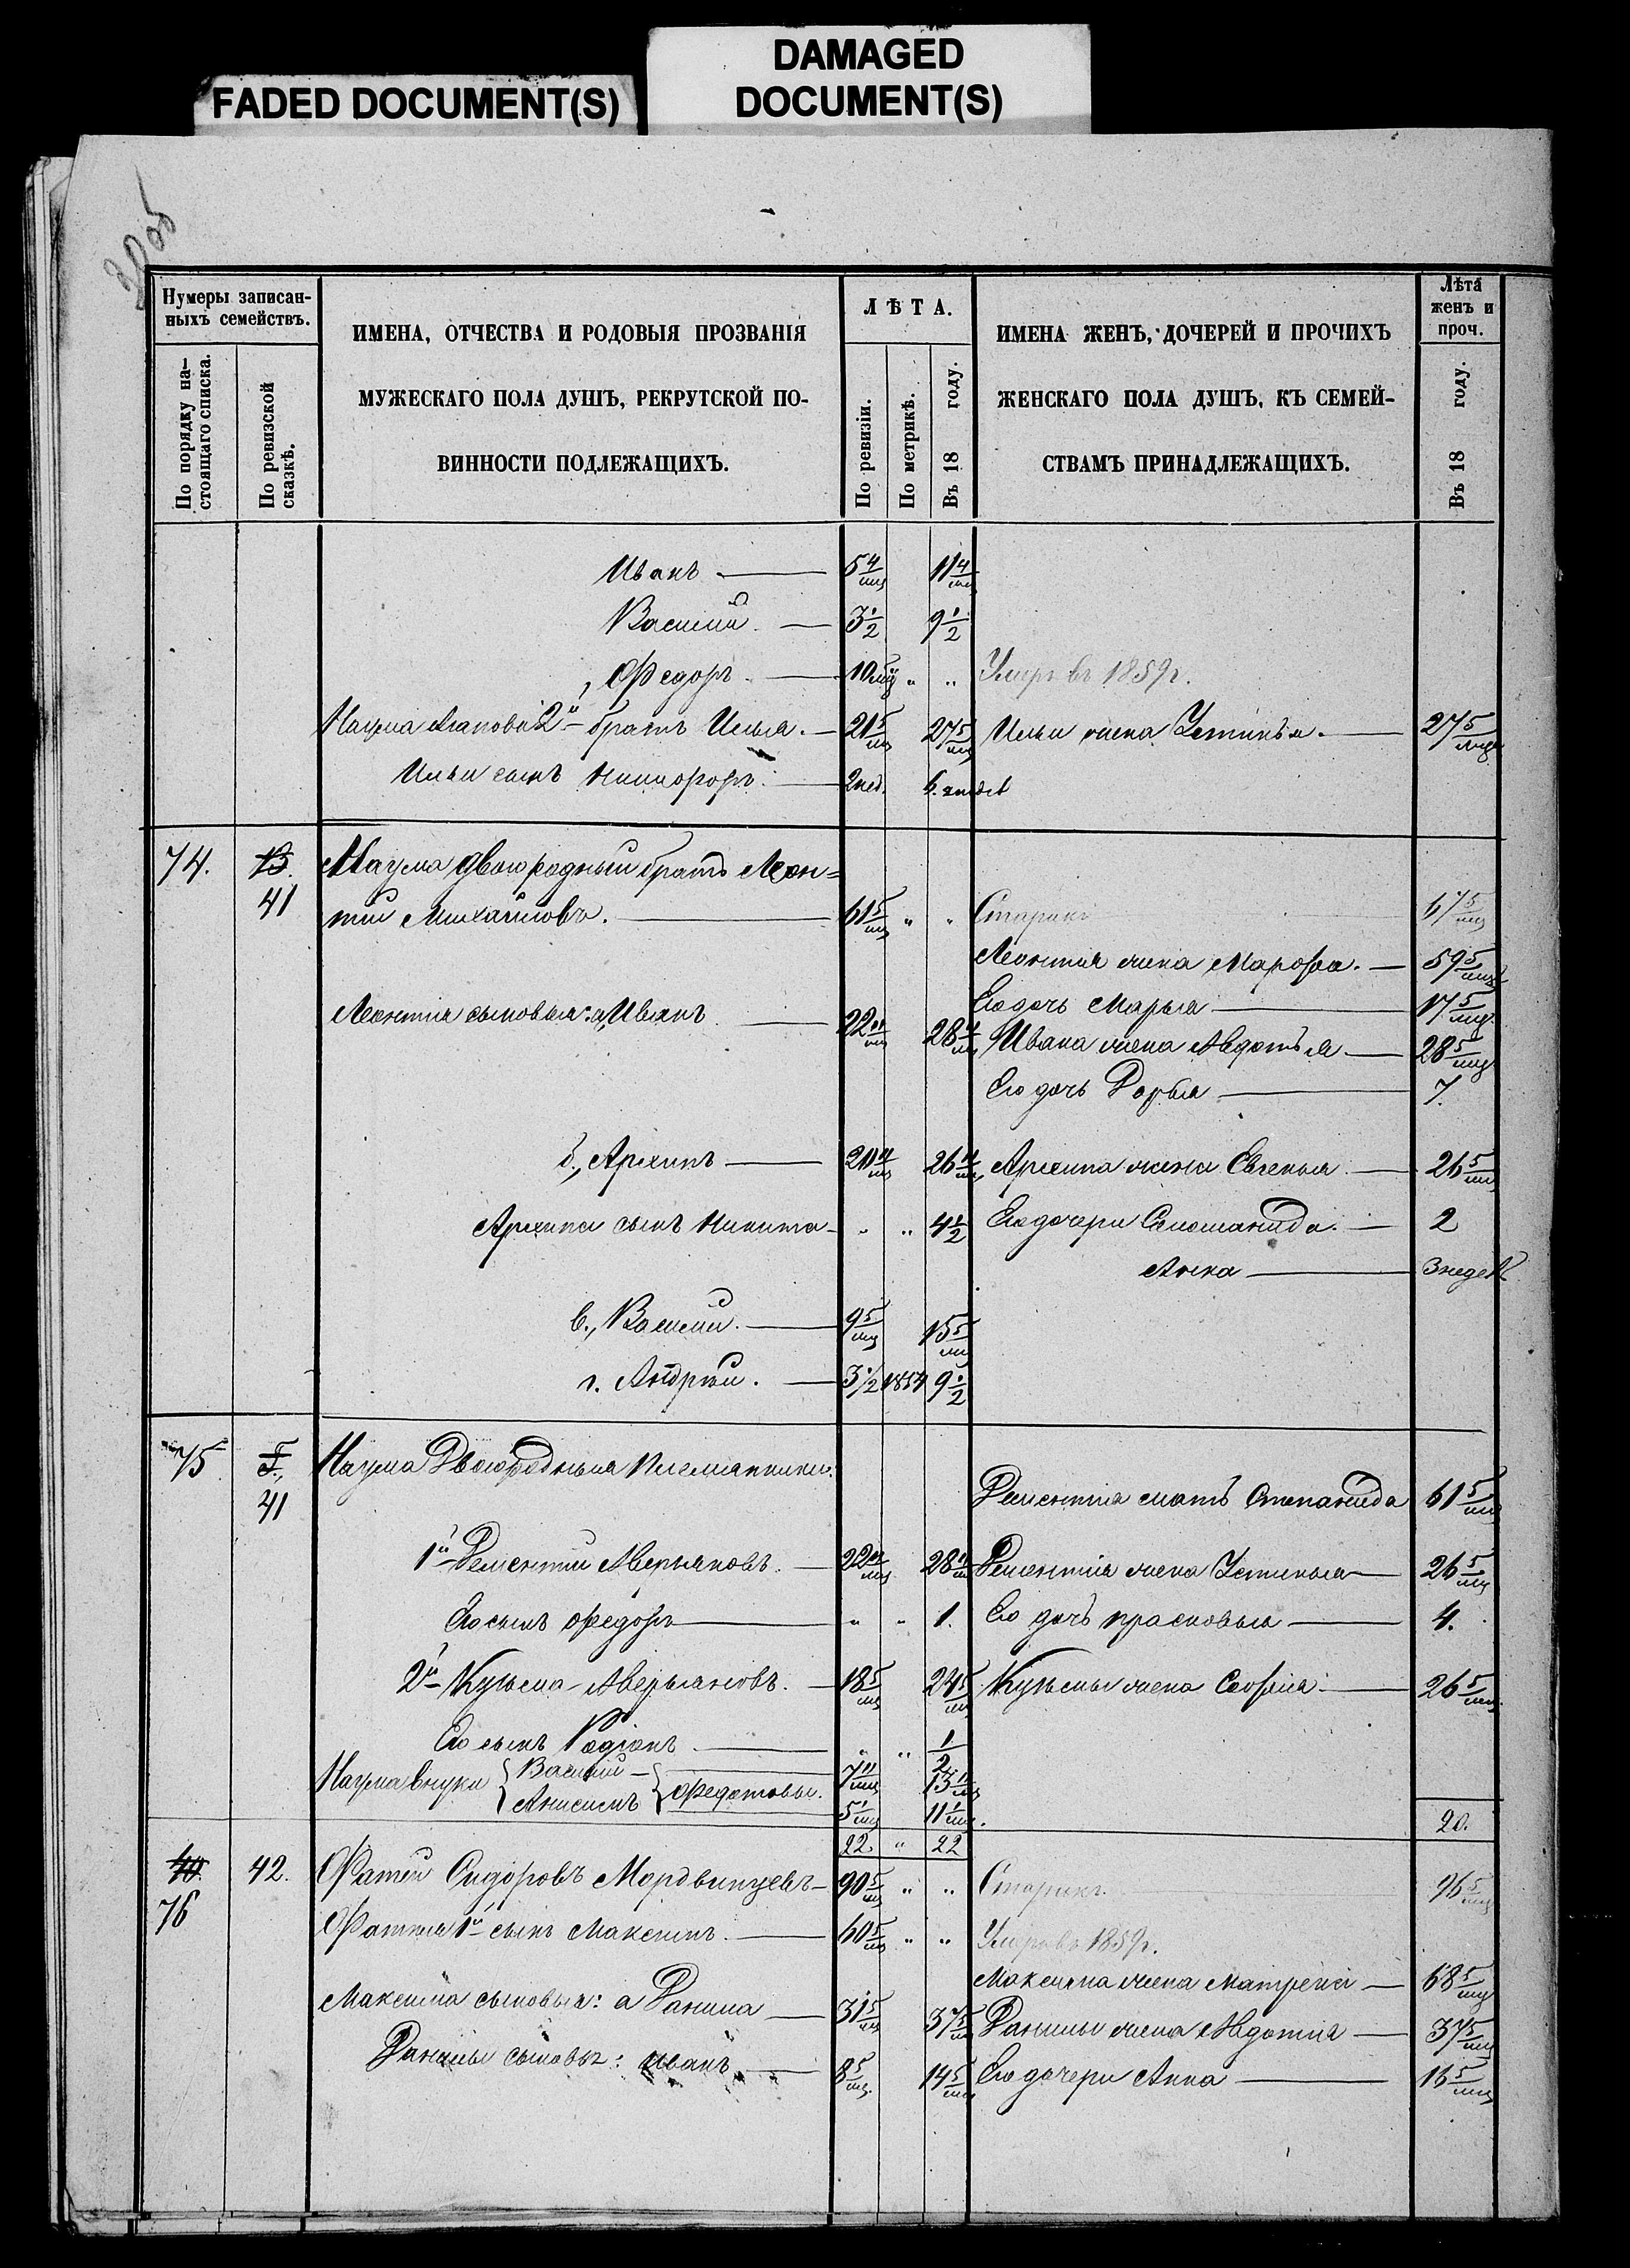 FADED DOCUMENT(S)
DAMAGED
DOCUMENT(S)
Нумеры записан-
ныхъ семействъ.
По порядку на-
стоящаго списка.
По ревизской
сказкѣ.
ИМЕНА, ОТЧЕСТВА И РОДОВЫЯ ПРОЗВАНІЯ
МУЖЕСКАГО ПОЛА ДУШЪ, РЕКРУТСКОЙ ПО-
ВИННОСТИ ПОДЛЕЖАЩИХЪ.
ЛѢТА.
По ревизіи.
По метрикѣ.
Въ 18 году.
ИМЕНА ЖЕНЪ, ДОЧЕРЕЙ И ПРОЧИХЪ
ЖЕНСКАГО ПОЛА ДУШЪ, КЪ СЕМЕЙ-
СТВАМЪ ПРИНАДЛЕЖАЩИХЪ.
Лѣта
женъ и
проч.
Въ 18 году.
Иванъ — 5 4/мц 11 4/мц
Василій — 3 1/2 9 1/2
Федоръ — 10 мц " " Умеръ въ 1859г.
Наума 2й братъ Илья — 21 5/мц 27 5/мц Ильи жена Устинья — 27 5/мц
Ильи сынъ Никифоръ — 2 нед. 6
74. 41 Наума двоюродный братъ Леон=
тій Михайловъ — 61 5/мц " " Старикъ 67 5/мц
Леонтія жена Марфа — 59 5/мц
Его дочь Марья — 17 5/мц
Леонтія сыновья: а, Иванъ — 22 11/мц 28 11/мц Ивана жена Авдотья — 28 5/мц
Его дочь Дарья — 7.
б., Архипъ — 20 11/мц 26 11/мц Архипа жена Евгенья — 26 5/мц
Архипа сынъ Никита — " " 4 1/2 Его дочери Соломанида — 2
Анна — 3 недел
в., Василій — 9 5/мц 15 5/мц
г. Андрей — 3 1/2 1854 9 1/2
75 41 Наума Двоюродныя племянники:
Дементія мать Степанида 61 5/мц
1й Дементій Аверьяновъ — 22 11/мц 28 11/мц Дементія жена Устинья — 26 5/мц
Его сынъ Федоръ — " " 1. Его дочь Прасковья — 4.
2й Кузьма Аверьяновъ — 18 5/мц 24 5/мц Кузьмы жена Софья — 26 5/мц
Его сынъ Родіонъ — " " 1/2
Наума внуки { Василій — } Федотовы. 7 11/мц 13 11/мц
Анисимъ 5 1/мц 11 1/мц
22. " 22 20.
40. 76 42. Фатей Сидоровъ Мордвинцевъ — 90 5/мц " " Старикъ 96 5/мц
Фатея 1й сынъ Максимъ — 60 5/мц " " Умеръ въ 1859г.
Максима жена Матрена — 68 5/мц
Максима сыновья: а Данила — 31 5/мц 37 5/мц Данилы жена Авдотія — 37 5/мц
Данилы сыновья: Иванъ — 8 5/мц 14 5/мц Его дочери Анна — 16 5/мц